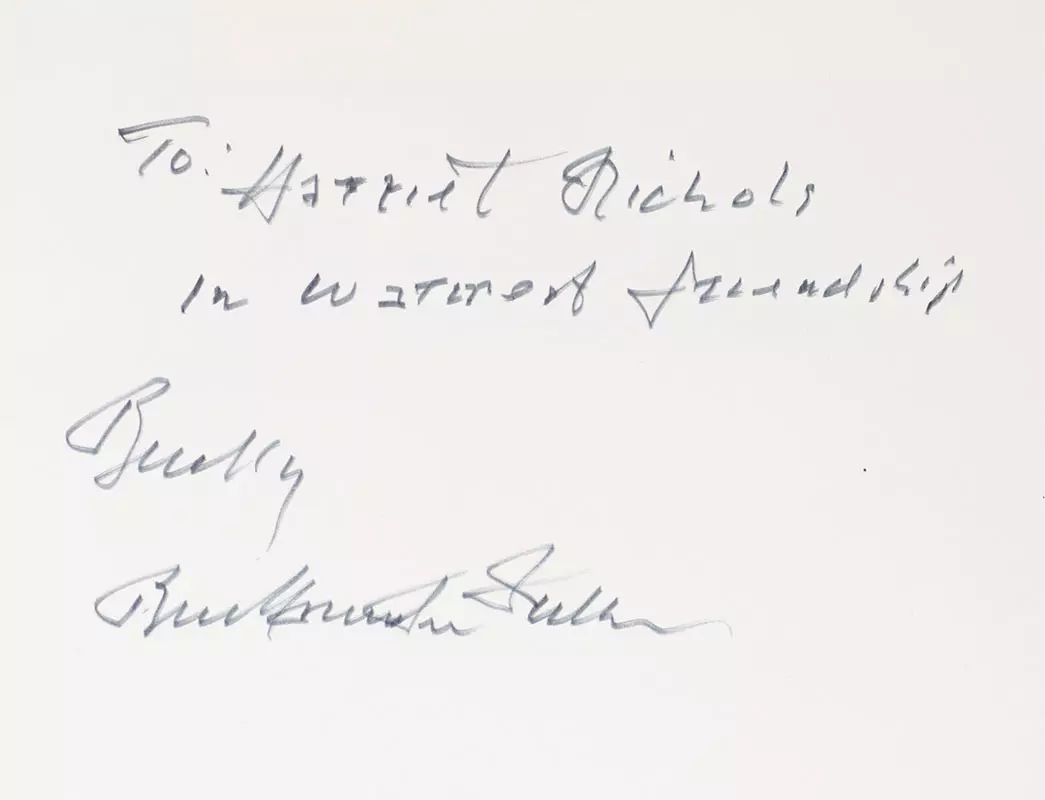 To: Harriet Nichols
in warmest friendship
Bucky
Buckminster Fuller